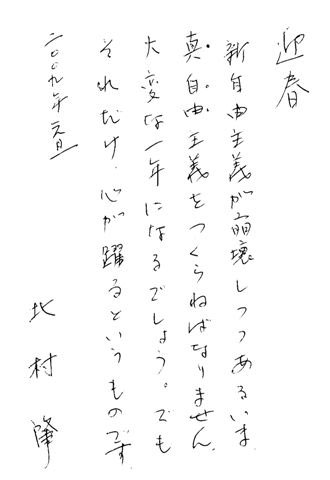 迎春
新自由主義が崩壊しつつあるいま
真自由主義をつくらねばなりません。
大変な一年になるでしょう。でも
それだけ心が躍るというものです
二〇〇九年元旦
北村肇